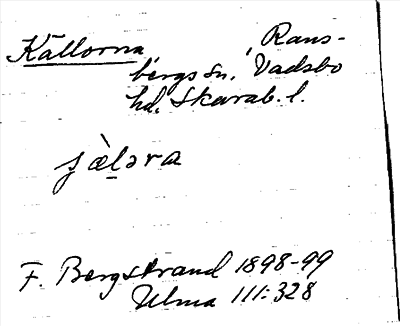 Källorna, Rans-
bergs sn, Vadsbo
hd, Skarab. l.
jæ̀l̠ǝra
F. Bergstrand 1898-99
Ulma 111:328